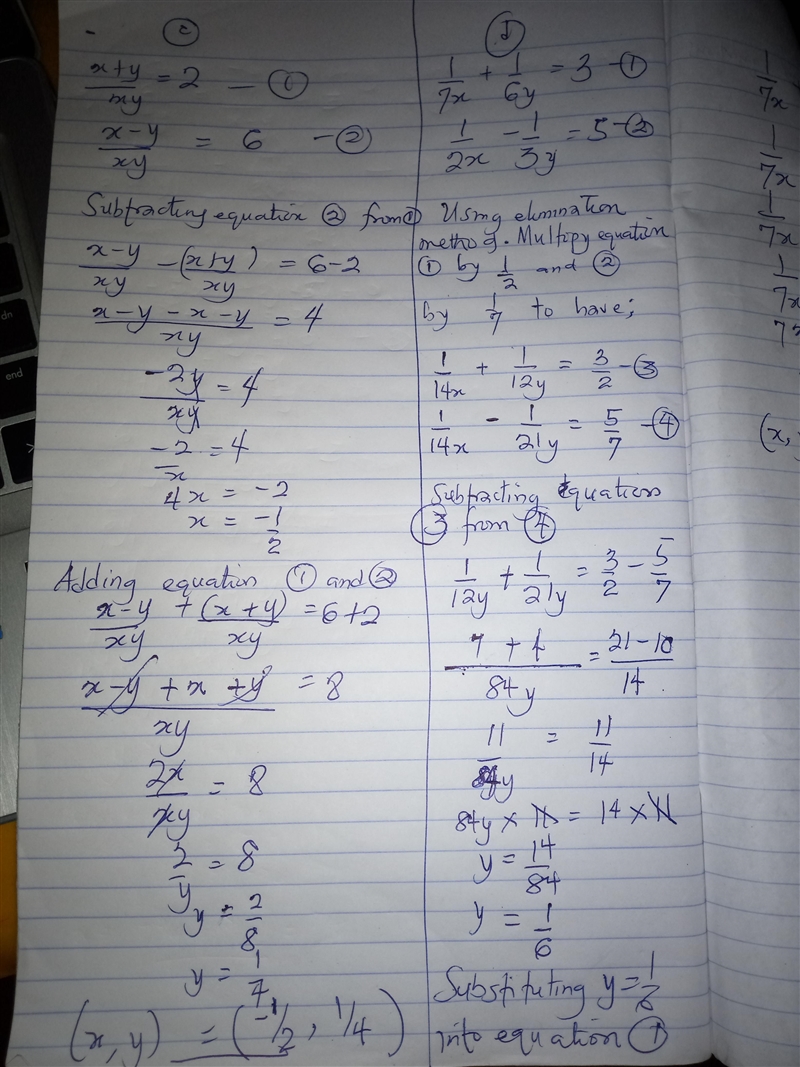 c
x+y/xy = 2 — ①
x-y/xy = 6 — ②
Subtracting equation ② from ①
x-y/xy - (x+y/xy) = 6-2
x-y-x-y/xy = 4
-2y/xy = 4
-2/x = 4
4x = -2
x = -1/2
Adding equation ① and ②
x-y/xy + (x+y)/xy = 6+2
x-y+x+y/xy = 8
2x/xy = 8
2/y = 8
y = 2/8
y = 1/7
(x, y) = (-1/2, 1/4)
1/7x + 1/6y = 3 -①
1/2x - 1/3y = 5 -②
Using elimination
method. Multipy equation
① by 1/2 and ②
by 1/7 to have;
1/14x + 1/12y = 3/2 -③
1/14x - 1/21y = 5/7 -④
Subtracting equation
③ from ④
1/12y + 1/21y = 3/2 - 5/7
7+4/84y = 21-10/14
11/84y = 11/14
84y × 11 = 14 × 11
y = 14/84
y = 1/6
Substituting y = 1/6
into equation ①
1/7x
1/7x
1/7x
1/7x
7x
(x,
dn
end